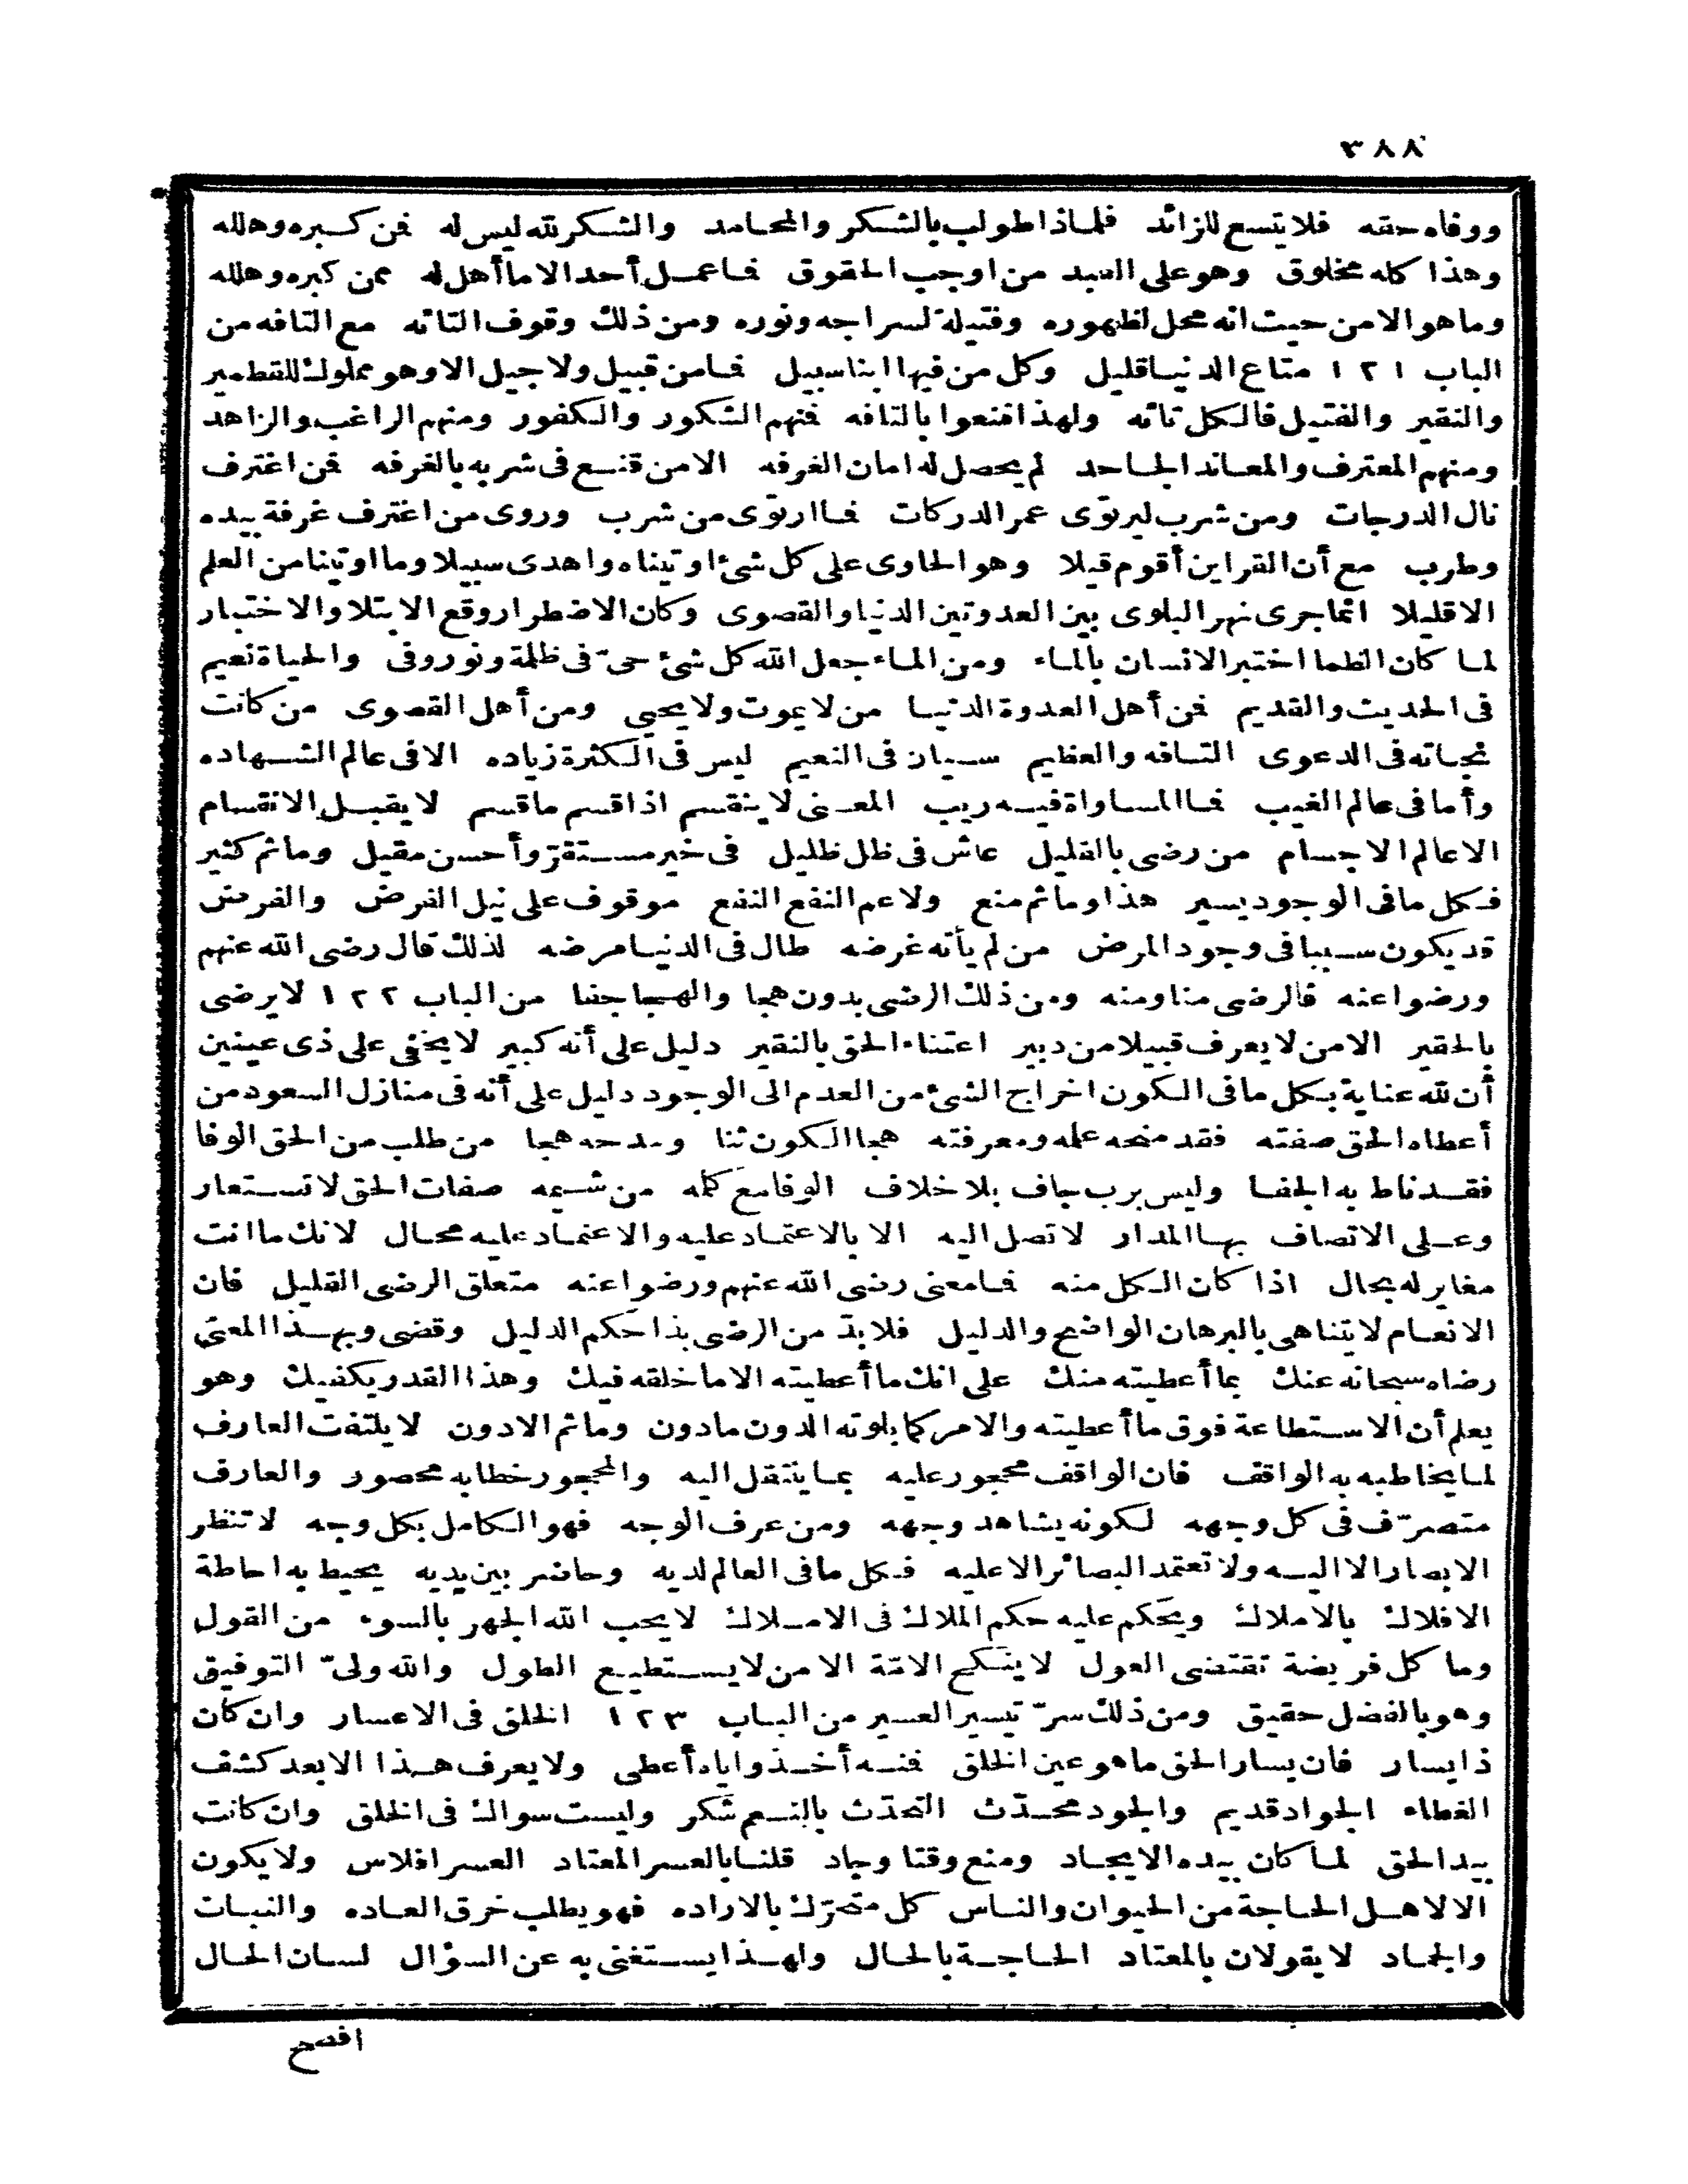 ٣٨٨
ووفاه حقه فلا يتسع للزائد فلماذا طولب بالشكر والمحامد والشكر لله ليس له فمن كبره وهلله
وهذا كله مخلوق وهو على العبد من اوجب الحقوق فما عمل أحد الا ما أهل له ممن كبره وهلله
وما هو الا من حيث انه محل لظهوره وفتيلة لسراجه ونوره ومن ذلك وقوف التائه مع التافه من
الباب ١٢١ متاع الدنيا قليل وكل من فيها ابناسبيل فما من قبيل ولا جيل الا وهو مملوك للقطمير
والنقير والفتيل فالكل تائه ولهذا اقنعوا بالتافه فمنهم الشكور والكفور ومنهم الراغب والزاهد
ومنهم المعترف والمعاند الجاحد لم يحصل له امان الغرفه الا من قنع فى شربه بالغرفه فمن اغترف
نال الدرجات ومن شرب ليرتوى عمر الدركات فما ارتوى من شرب وروى من اغترف غرفة بيده
وطرب مع أن القراين أقوم قيلا وهو الحاوى على كل شئ اوتيناه واهدى سبيلا وما اوتينا من العلم
الا قليلا انما جرى نهر البلوى بين العدوتين الدنيا والقصوى وكان الاضطرار وقع الابتلا والاختبار
لما كان الظما اختبر الانسان بالماء ومن الماء جعل الله كل شئ حىّ فى ظلمة ونور وفى والحياة نعيم
فى الحديث والقديم فمن أهل العدوة الدنيا من لا يموت ولا يحيى ومن أهل القصوى من كانت
نجاته فى الدعوى التافه والعظيم سيان فى النعيم ليس فى الكثرة زياده الا فى عالم الشهاده
وأما فى عالم الغيب فما المساواة فيه ريب المعنى لا ينقسم اذا قسم ما قسم لا يقبل الانقسام
الا عالم الاجسام من رضى بالقليل عاش فى ظل ظليل فى خير مستقرّ وأحسن مقيل وما ثم كثير
فكل ما فى الوجود يسير هذا وما ثم منع ولا عم النفع النفع موقوف على نيل الغرض والغرض
قد يكون سببا فى وجود المرض من لم يأته غرضه طال فى الدنيا مرضه لذلك قال رضى الله عنهم
ورضوا عنه فالرضى منا ومنه ومن ذلك الرضى بدون هجا والهجا جفا من الباب ١٢٢ لا يرضى
بالحقير الا من لا يعرف قبيلا من دبير اعتناء الحق بالنقير دليل على أنه كبير لا يخفى على ذى عينين
أن لله عناية بكل ما فى الكون اخراج الشئ من العدم الى الوجود دليل على أنه فى منازل السعود من
أعطاه الحق صفته فقد منحه علمه ومعرفته هجا الكون ثنا ومدحه هجا من طلب من الحق الوفا
فقد ناط به الجفا وليس برب جاف بلا خلاف الوفا مع كله من شيمه صفات الحق لا تستعار
وعلى الاتصاف بها المدار لا تصل اليه الا بالاعتماد عليه والاعتماد عليه محال لانك ما انت
مغاير له بحال اذا كان الكل منه فما معنى رضى الله عنهم ورضوا عنه متعلق الرضى القليل فان
الانعام لا يتناهى بالبرهان الواضح والدليل فلا بدّ من الرضى بذا حكم الدليل وقضى وبهذا المعنى
رضاه سبحانه عنك بما أعطيته منك على انك ما أعطيته الا ما خلقه فيك وهذا القدر يكفيك وهو
يعلم أن الاستطاعة فوق ما أعطيته والامر كما بلوته الدون مادون وما ثم الا دون لا يلتفت العارف
لما يخاطبه به الواقف فان الواقف محجور عليه بما ينتقل اليه والمحجور خطابه محصور والعارف
متصرّف فى كل وجهه لكونه يشاهد وجهه ومن عرف الوجه فهو الكامل بكل وجه لا تنظر
الابصار الا اليه ولا تعتمد البصائر الا عليه فكل ما فى العالم لديه وحاضر بين يديه يحيط به احاطة
الافلاك بالاملاك ويحكم عليه حكم الملاك فى الاملاك لا يحب الله الجهر بالسوء من القول
وما كل فريضة تقتضى العول لا ينكح الامّة الا من لا يستطيع الطول والله ولىّ التوفيق
وهو بالفضل حقيق ومن ذلك سرّ تيسير العسير من الباب ١٢٣ الخلق فى الاعسار وان كان
ذا يسار فان يسار الحق ما هو عين الخلق فمنه أخذ واياه أعطى ولا يعرف هذا الا بعد كشف
الغطاء الجواد قديم والجود محدّث التحدّث بالنعم شكر وليست سواك فى الخلق وان كانت
بيد الحق لما كان بيده الايجاد ومنع وقتا وجاد قلنا بالعسر المعتاد العسر افلاس ولا يكون
الا لاهل الحاجة من الحيوان والناس كل متحرّك بالاراده فهو يطلب خرق العاده والنبات
والجماد لا يقولان بالمعتاد الحاجة بالحال ولهذا يستغنى به عن السؤال لسان الحال
افصح